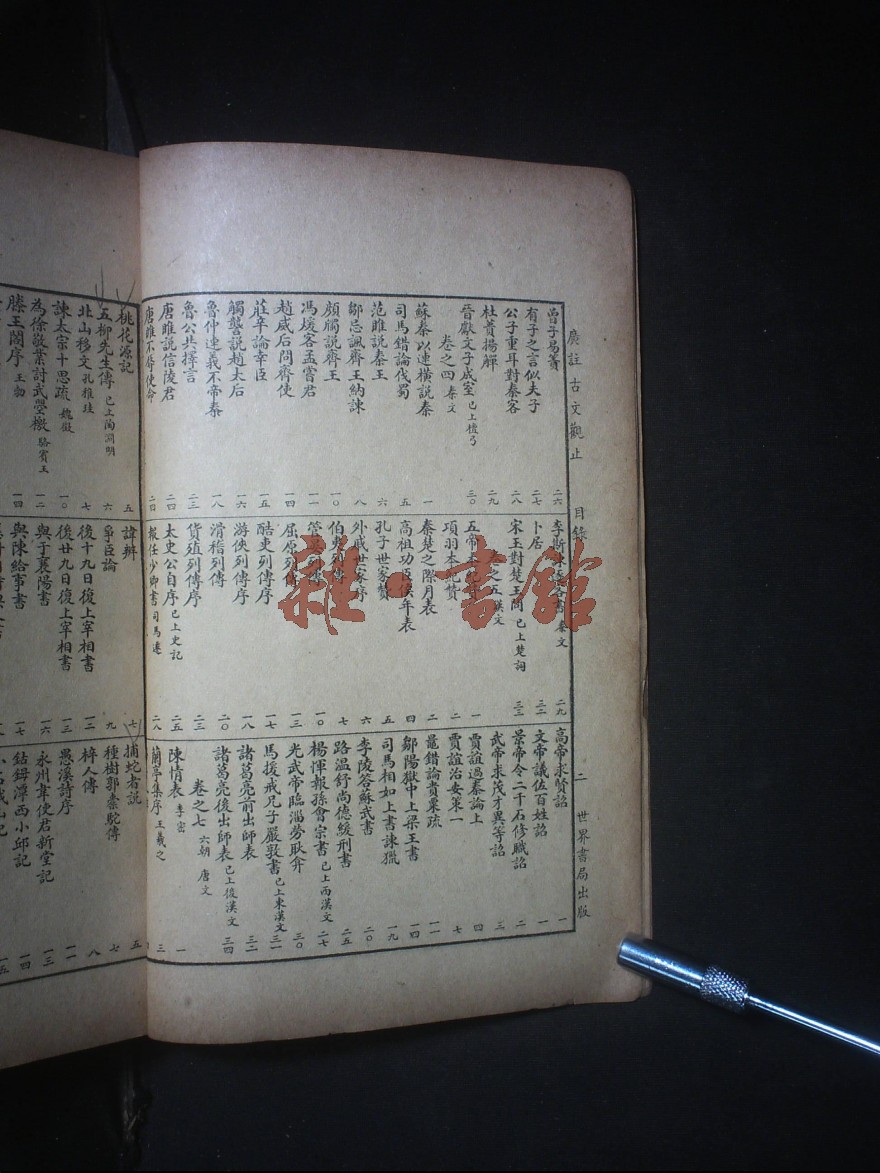 廣註古文觀止
目錄
二
世界書局出版
曾子易簀 二六
有子之言似夫子 二七
公子重耳對秦客 二八
杜蕢揚觶 二九
晉獻文子成室 已上檀弓 三〇
卷之四 秦文
蘇秦以連橫說秦 一
司馬錯論伐蜀 五
范雎說秦王 六
鄒忌諷齊王納諫 八
顏斶說齊王 一〇
馮煖客孟嘗君 一一
趙威后問齊使 一四
莊辛論幸臣 一五
觸讋說趙太后 一六
魯仲連義不帝秦 一八
魯公共擇言 二三
唐雎說信陵君 二四
唐雎不辱使命 二四
李斯諫逐客書 秦文 二九
卜居 三二
宋玉對楚王問 已上楚詞 三三
卷之五 漢文
五帝本紀贊 一
項羽本紀贊 二
秦楚之際月表 二
高祖功臣侯年表 四
孔子世家贊 五
外戚世家序 六
伯夷列傳 七
管晏列傳 一〇
屈原列傳 一三
酷吏列傳序 一七
游俠列傳序 一八
滑稽列傳 二〇
貨殖列傳序 二三
太史公自序 已上史記 二五
報任少卿書 司馬遷 二八
高帝求賢詔 一
文帝議佐百姓詔 一
景帝令二千石修職詔 二
武帝求茂才異等詔 三
賈誼過秦論上 四
賈誼治安策一 七
鼂錯論貴粟疏 一一
鄒陽獄中上梁王書 一四
司馬相如上書諫獵 一九
李陵答蘇武書 二〇
路溫舒尚德緩刑書 二五
楊惲報孫會宗書 已上西漢文 二七
光武帝臨淄勞耿弇 三〇
馬援戒兄子嚴敦書 已上東漢文 三一
諸葛亮前出師表 三二
諸葛亮後出師表 已上後漢文 三四
卷之七 六朝 唐文
陳情表 李密 一
蘭亭集序 王羲之 三
桃花源記 五
五柳先生傳 已上陶淵明 六
北山移文 孔稚珪 七
諫太宗十思疏 魏徵 一〇
為徐敬業討武曌檄 駱賓王 一二
滕王閣序 王勃 一四
諱辨 七
爭臣論 九
後十九日復上宰相書 一二
後廿九日復上宰相書 一三
與于襄陽書 一六
與陳給事書 一七
捕蛇者說 五
種樹郭橐駝傳 七
梓人傳 八
愚溪詩序 一一
永州韋使君新堂記 一四
鈷鉧潭西小邱記 一五
小石城山記
雜·書館